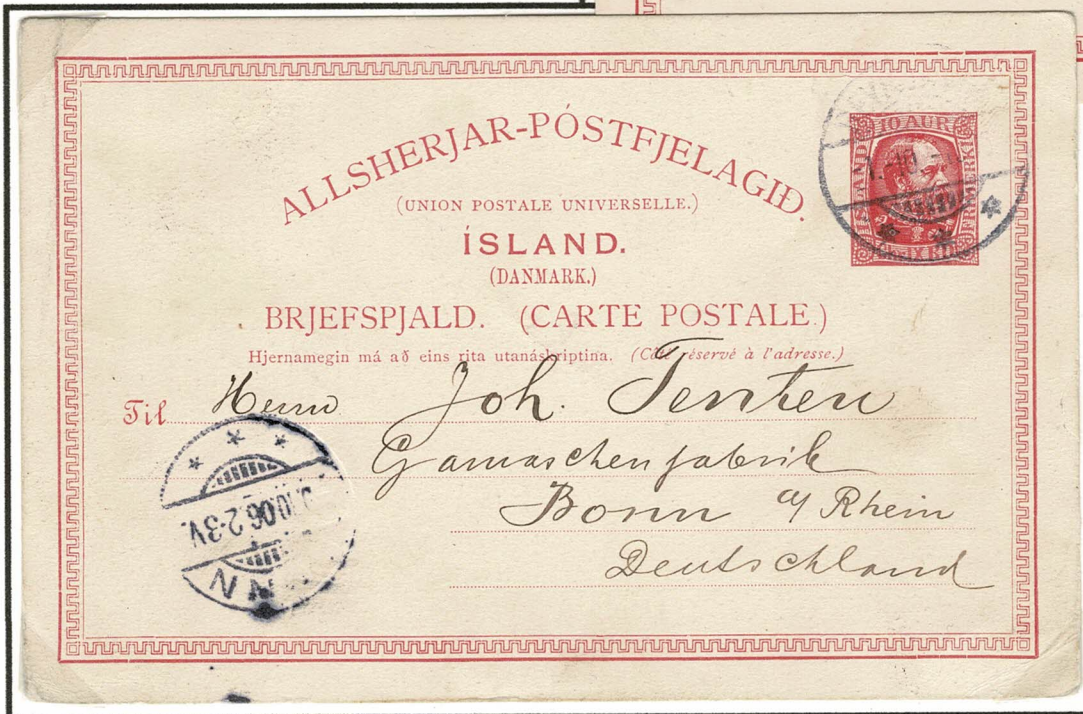 ALLSHERJAR-PÓSTFJELAGIÐ.
(UNION POSTALE UNIVERSELLE.)
ÍSLAND.
(DANMARK.)
BRJEFSPJALD. (CARTE POSTALE.)
Hjernamegin má að eins rita utanáskriptina. (Côté réservé à l'adresse.)
10 AUR.
ÍSLAND
FRÍMERKI
IX
Til Herrn Joh. Tenten
Gamaschenfabrik
Bonn a/ Rhein
Deutschland
10.06 2-3V.
NN